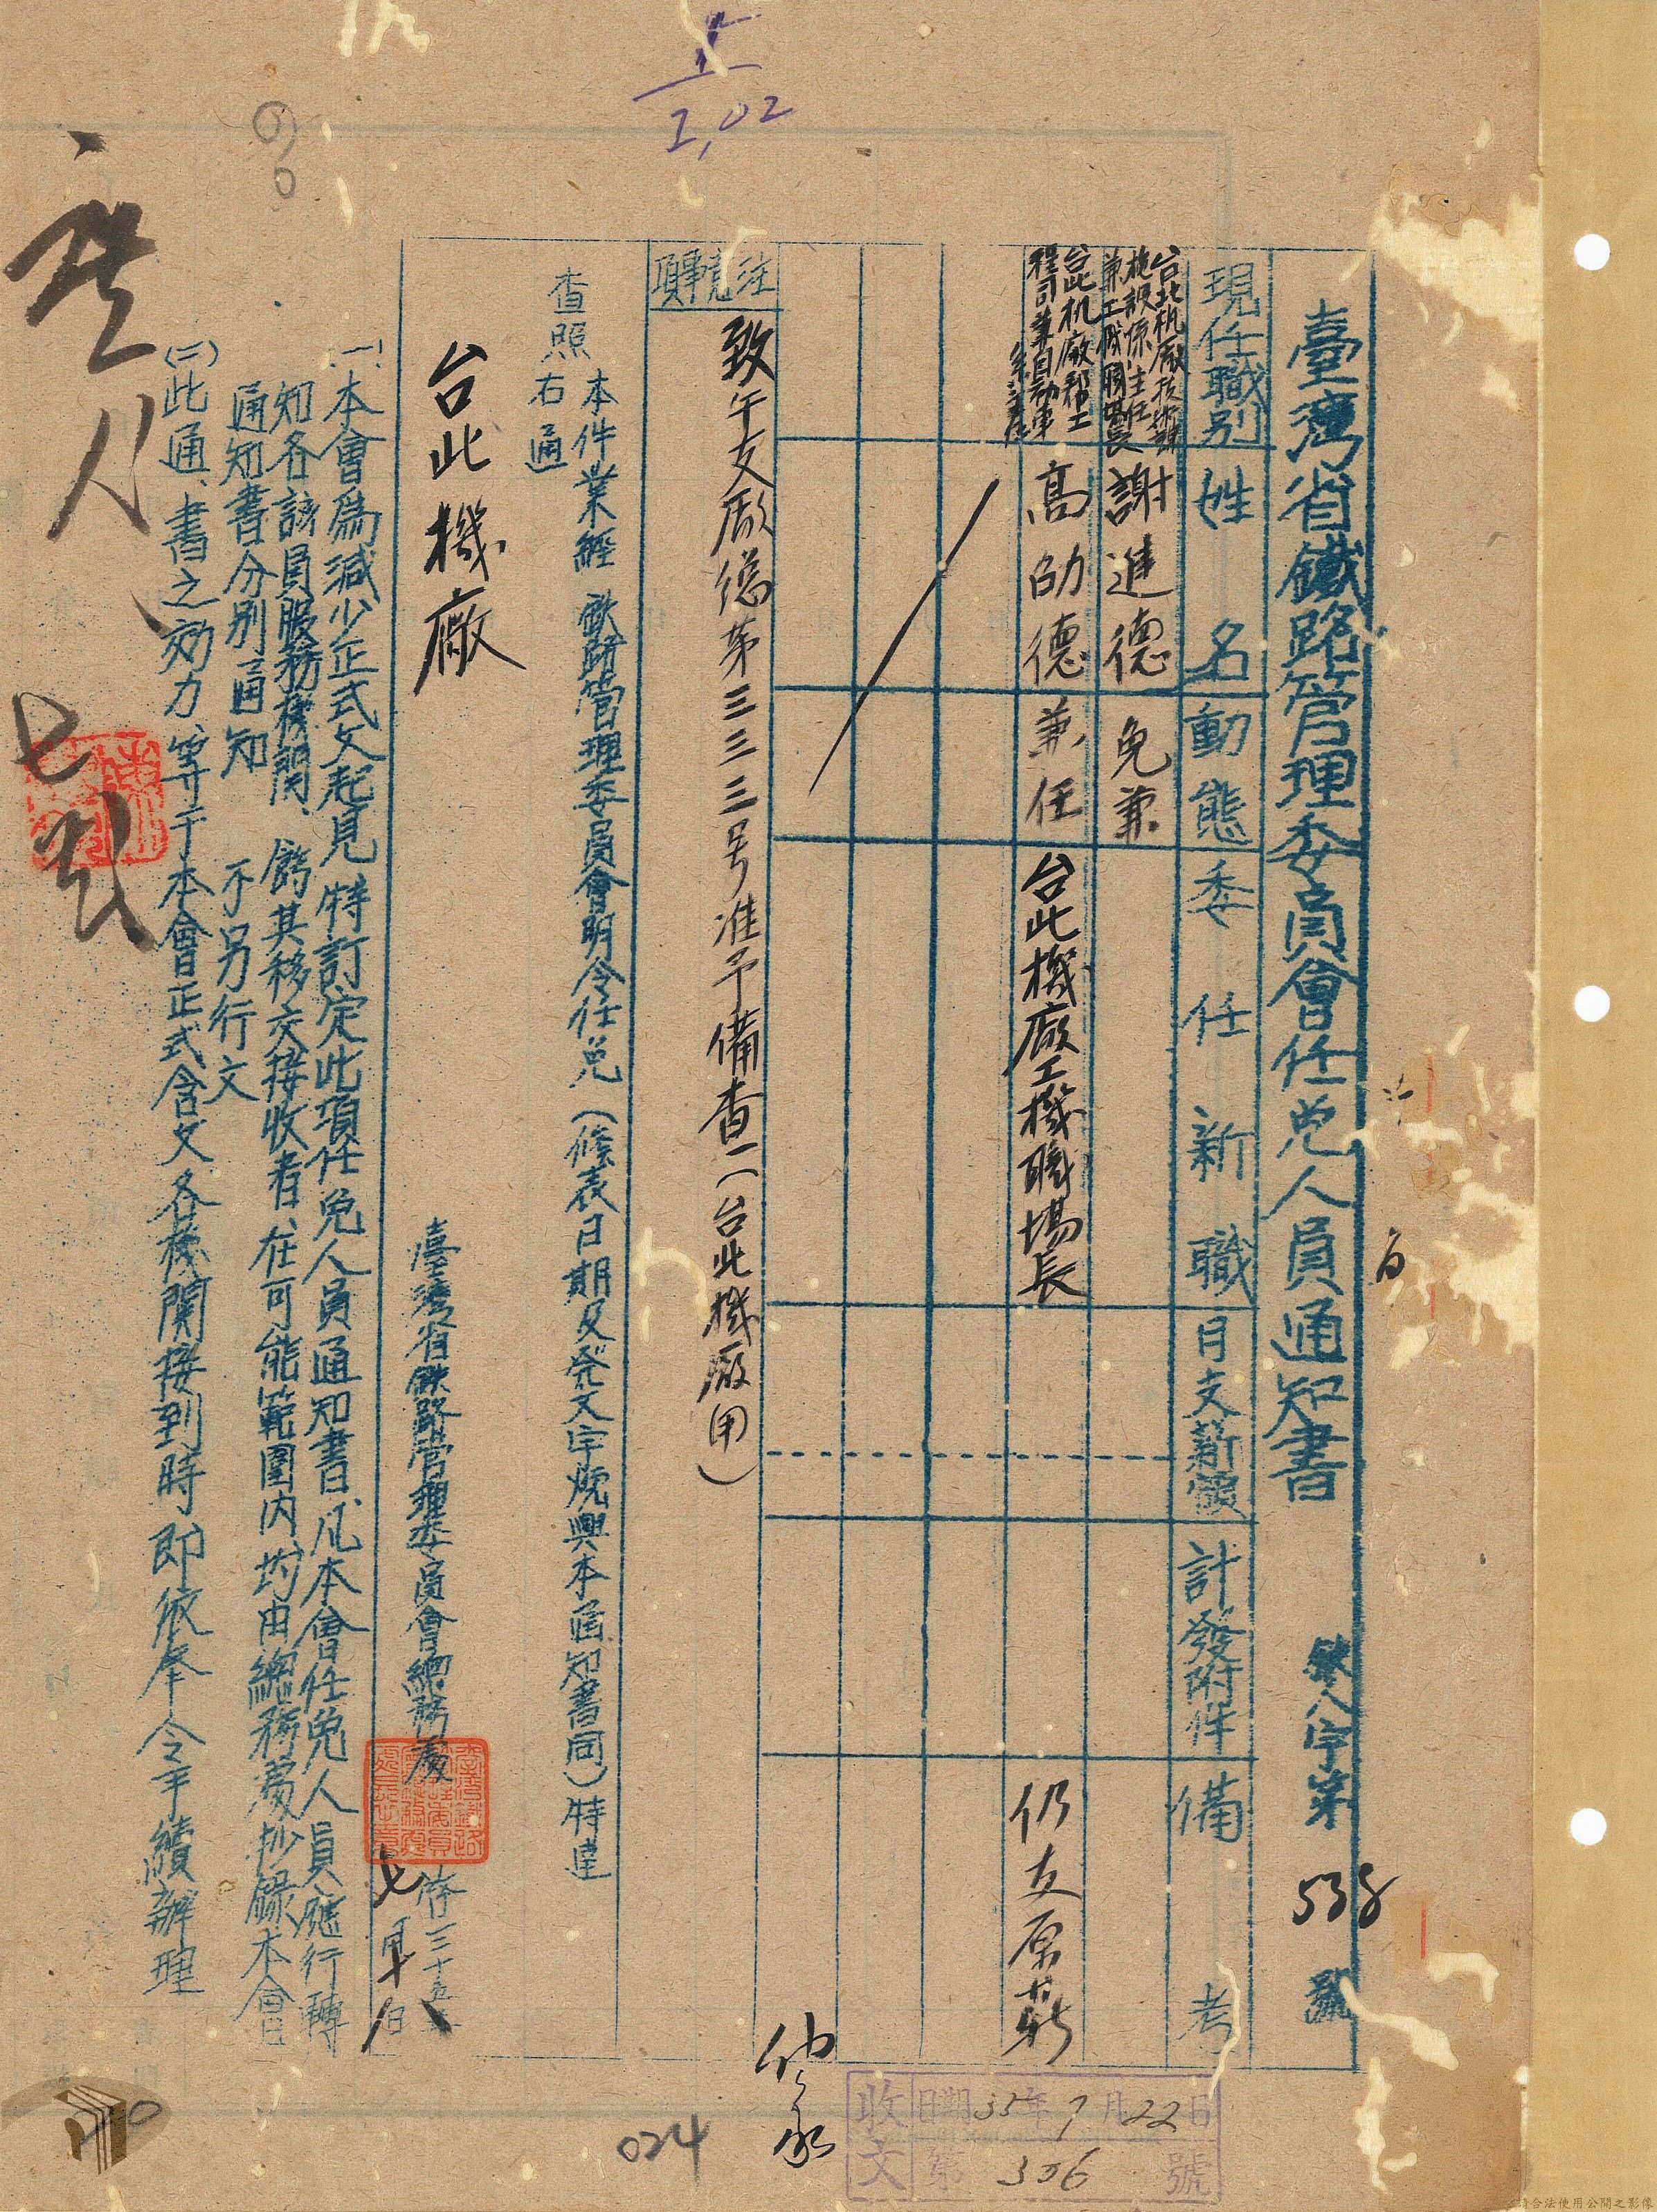 臺灣省鐵路管理委員會任免人員通知書
鐵人字第 538 號
現任職別
姓名
動態
委任新職
月支薪額
計發附件
備考
台北机廠技術課
施設係主任
兼工機職場長
謝進德
免兼
台北机廠幫工
程司兼自動車
高劭德
兼任
台北機廠工機職場長
仍支原薪
注意事項
致午支廠總第三三三号准予備查(台北機廠用)
本件業經 鐵路管理委員會明令任免(條表日期及發文字號與本通知書同)特達
查照
右通
台北機廠
臺灣省鐵路管理委員會總務處
三十五年
七月十八日
(一)本會為減少正式文起見特訂定此項任免人員通知書、凡本會任免人員應行轉
知各該員服務機關、飭其移交接收者、在可能範圍內、均由總務處抄錄本會
通知書分別通知 不另行文
(二)此通、書之効力、等于本會正式令文各機関接到時、即依奉令手續辦理
2,02
024
收文
日期 35年7月22日
第 306 號
請合法使用公開之影像